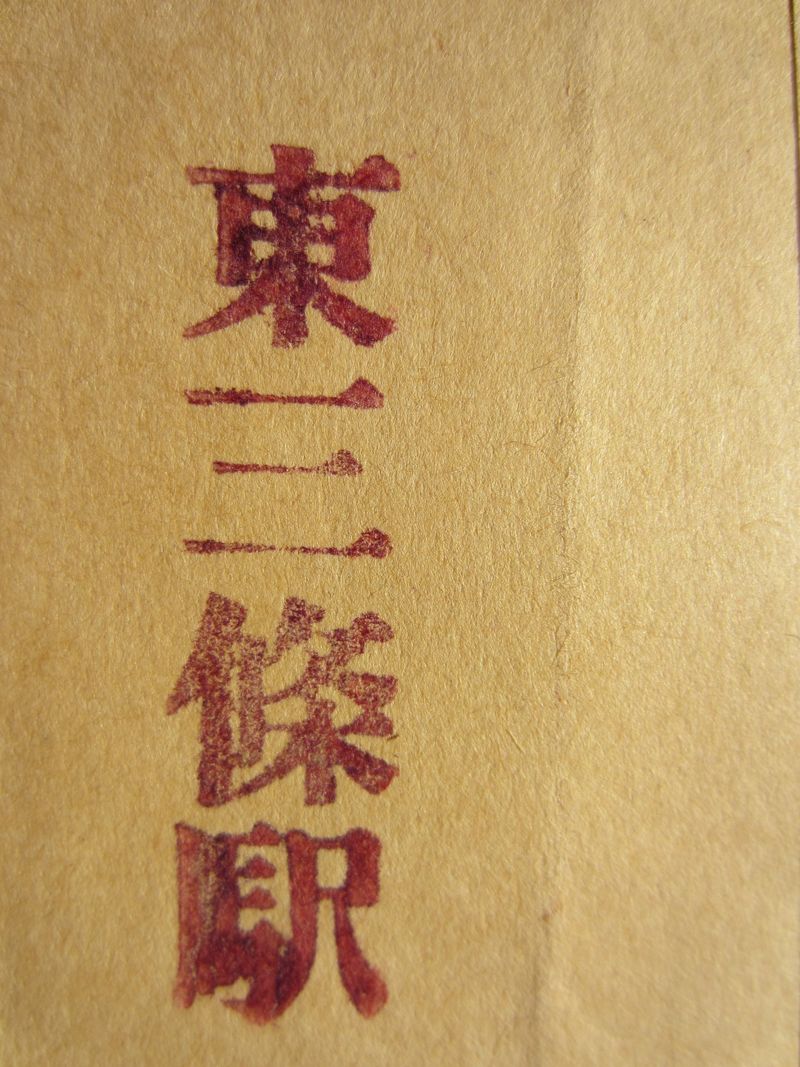 東三條駅